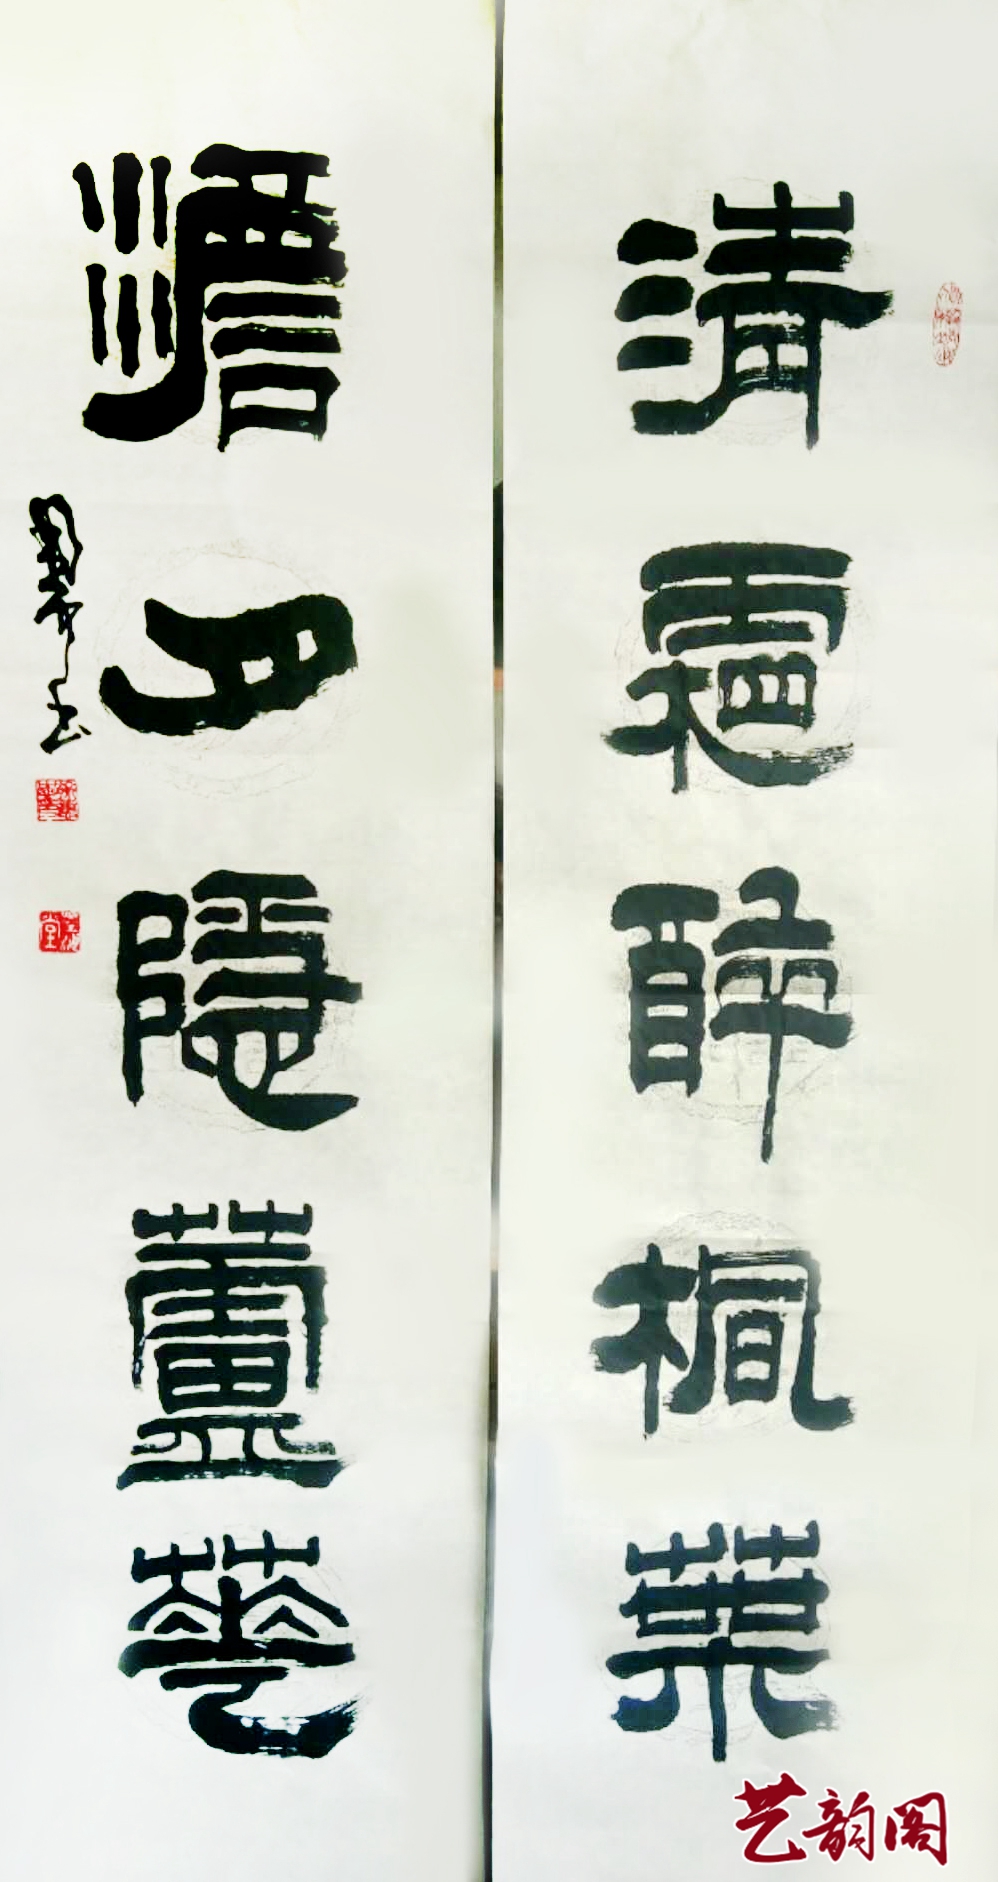 清霜醉楓葉
澹月隱蘆華
艺韵阁